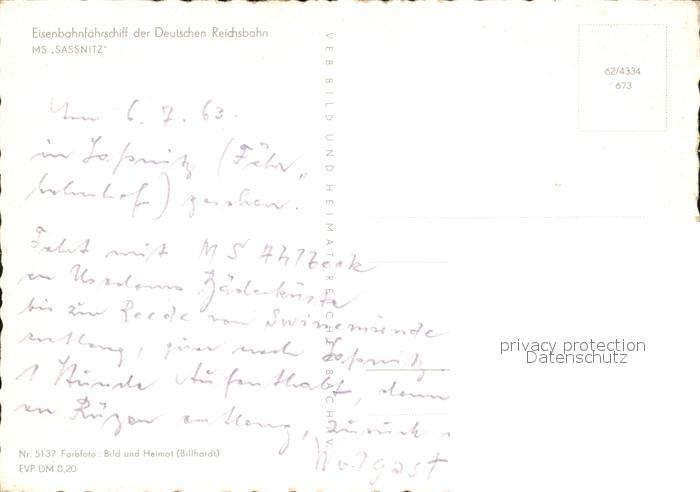 Eisenbahnfährschiff der Deutschen Reichsbahn
MS „SASSNITZ"
62/4334
673
Am 6. 7. 63.
in Saßnitz (Fähr„
bahnhof) gesehen.
Fahrt mit MS Ahlbeck
an Usedoms Bäderküste
bis zur Reede von Swinemünde
entlang, quer nach Saßnitz
1 Stunde Aufenthalt, dann
an Rügen entlang, zurück
Wolgast
VEB BILD UND HEIMAT REICHENBACH I. V.
privacy protection
Datenschutz
Nr. 5137 Farbfoto: Bild und Heimat (Billhardt)
EVP DM 0,20